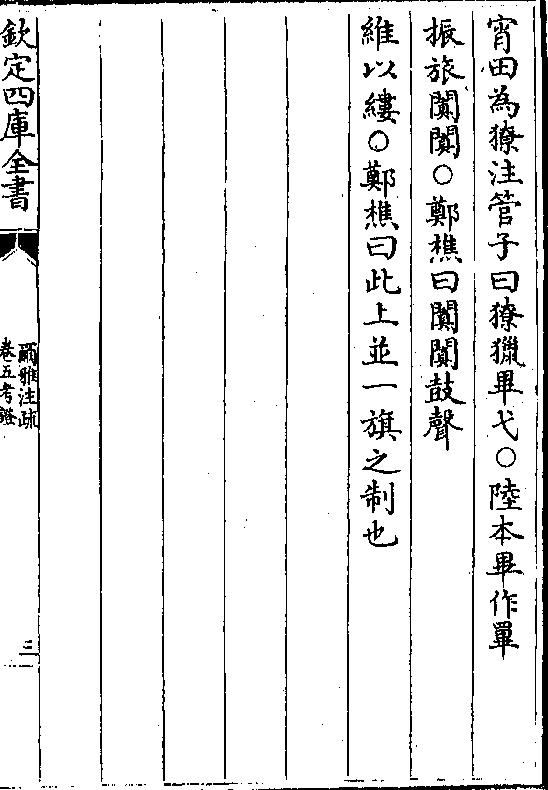 宵田為獠注管子曰獠獵畢弋○陸本畢作㓖
振旅闐闐○鄭樵曰闐闐鼓聲
維以縷○鄭樵曰此上並一旗之制也
欽定四庫全書
爾雅注疏
卷五考證
三